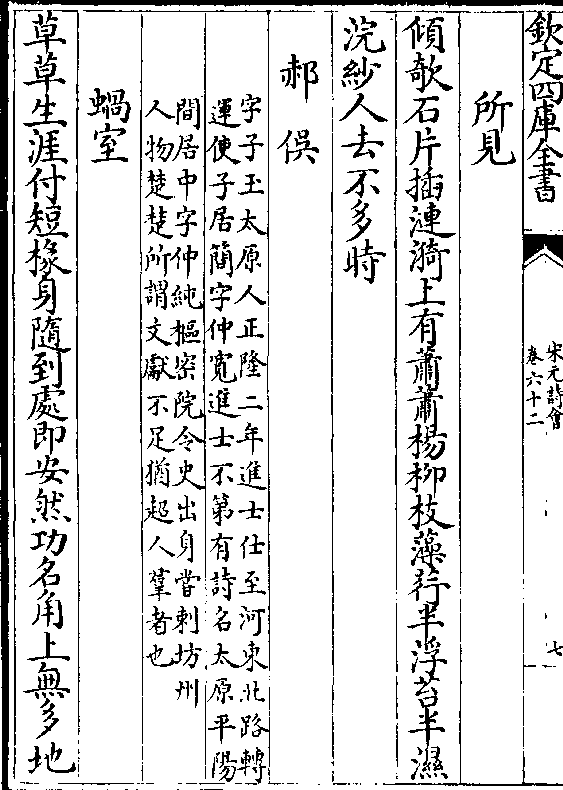 欽定四庫全書
宋元詩會
卷六十二
七
所見
傾欹石片插漣漪上有蕭蕭楊柳枝藻荇半浮苔半濕
浣紗人去不多時
郝俁
字子玉太原人正隆二年進士仕至河東北路轉
運使子居簡字仲寛進士不第有詩名太原平陽
間居中字仲純樞密院令史出身嘗刺坊州
人物楚楚所謂文獻不足猶起人輩者也
蝸室
草草生涯付短椽身隨到處即安然功名角上無多地